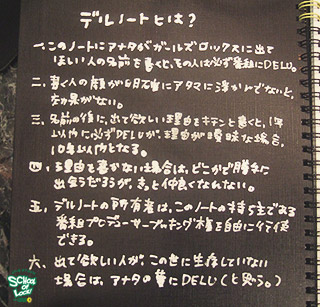 デルノートとは?
一、このノートにアナタがガールズロックスに出て
ほしい人の名前を書くと、その人は必ず番組にDELU。
二、書く人の顔が明確にアタマに浮かんでないと、
効果がない。
三、名前の後に、出て欲しい理由をキチンと書くと、1年
以内に必ずDELUが、理由が曖昧な場合、
10年以内となる。
四、理由を書かない場合は、どこかで勝手に
出会うだろうが、きっと仲良くなれない。
五、デルノートの所有者は、このノートの持ち主である
番組プロデューサーブッキング権を自由に行使
できる。
六、出て欲しい人が、この世に生存していない
場合は、アナタの夢にDELU(と思う。)
SCHOOL
OF
LOCK!